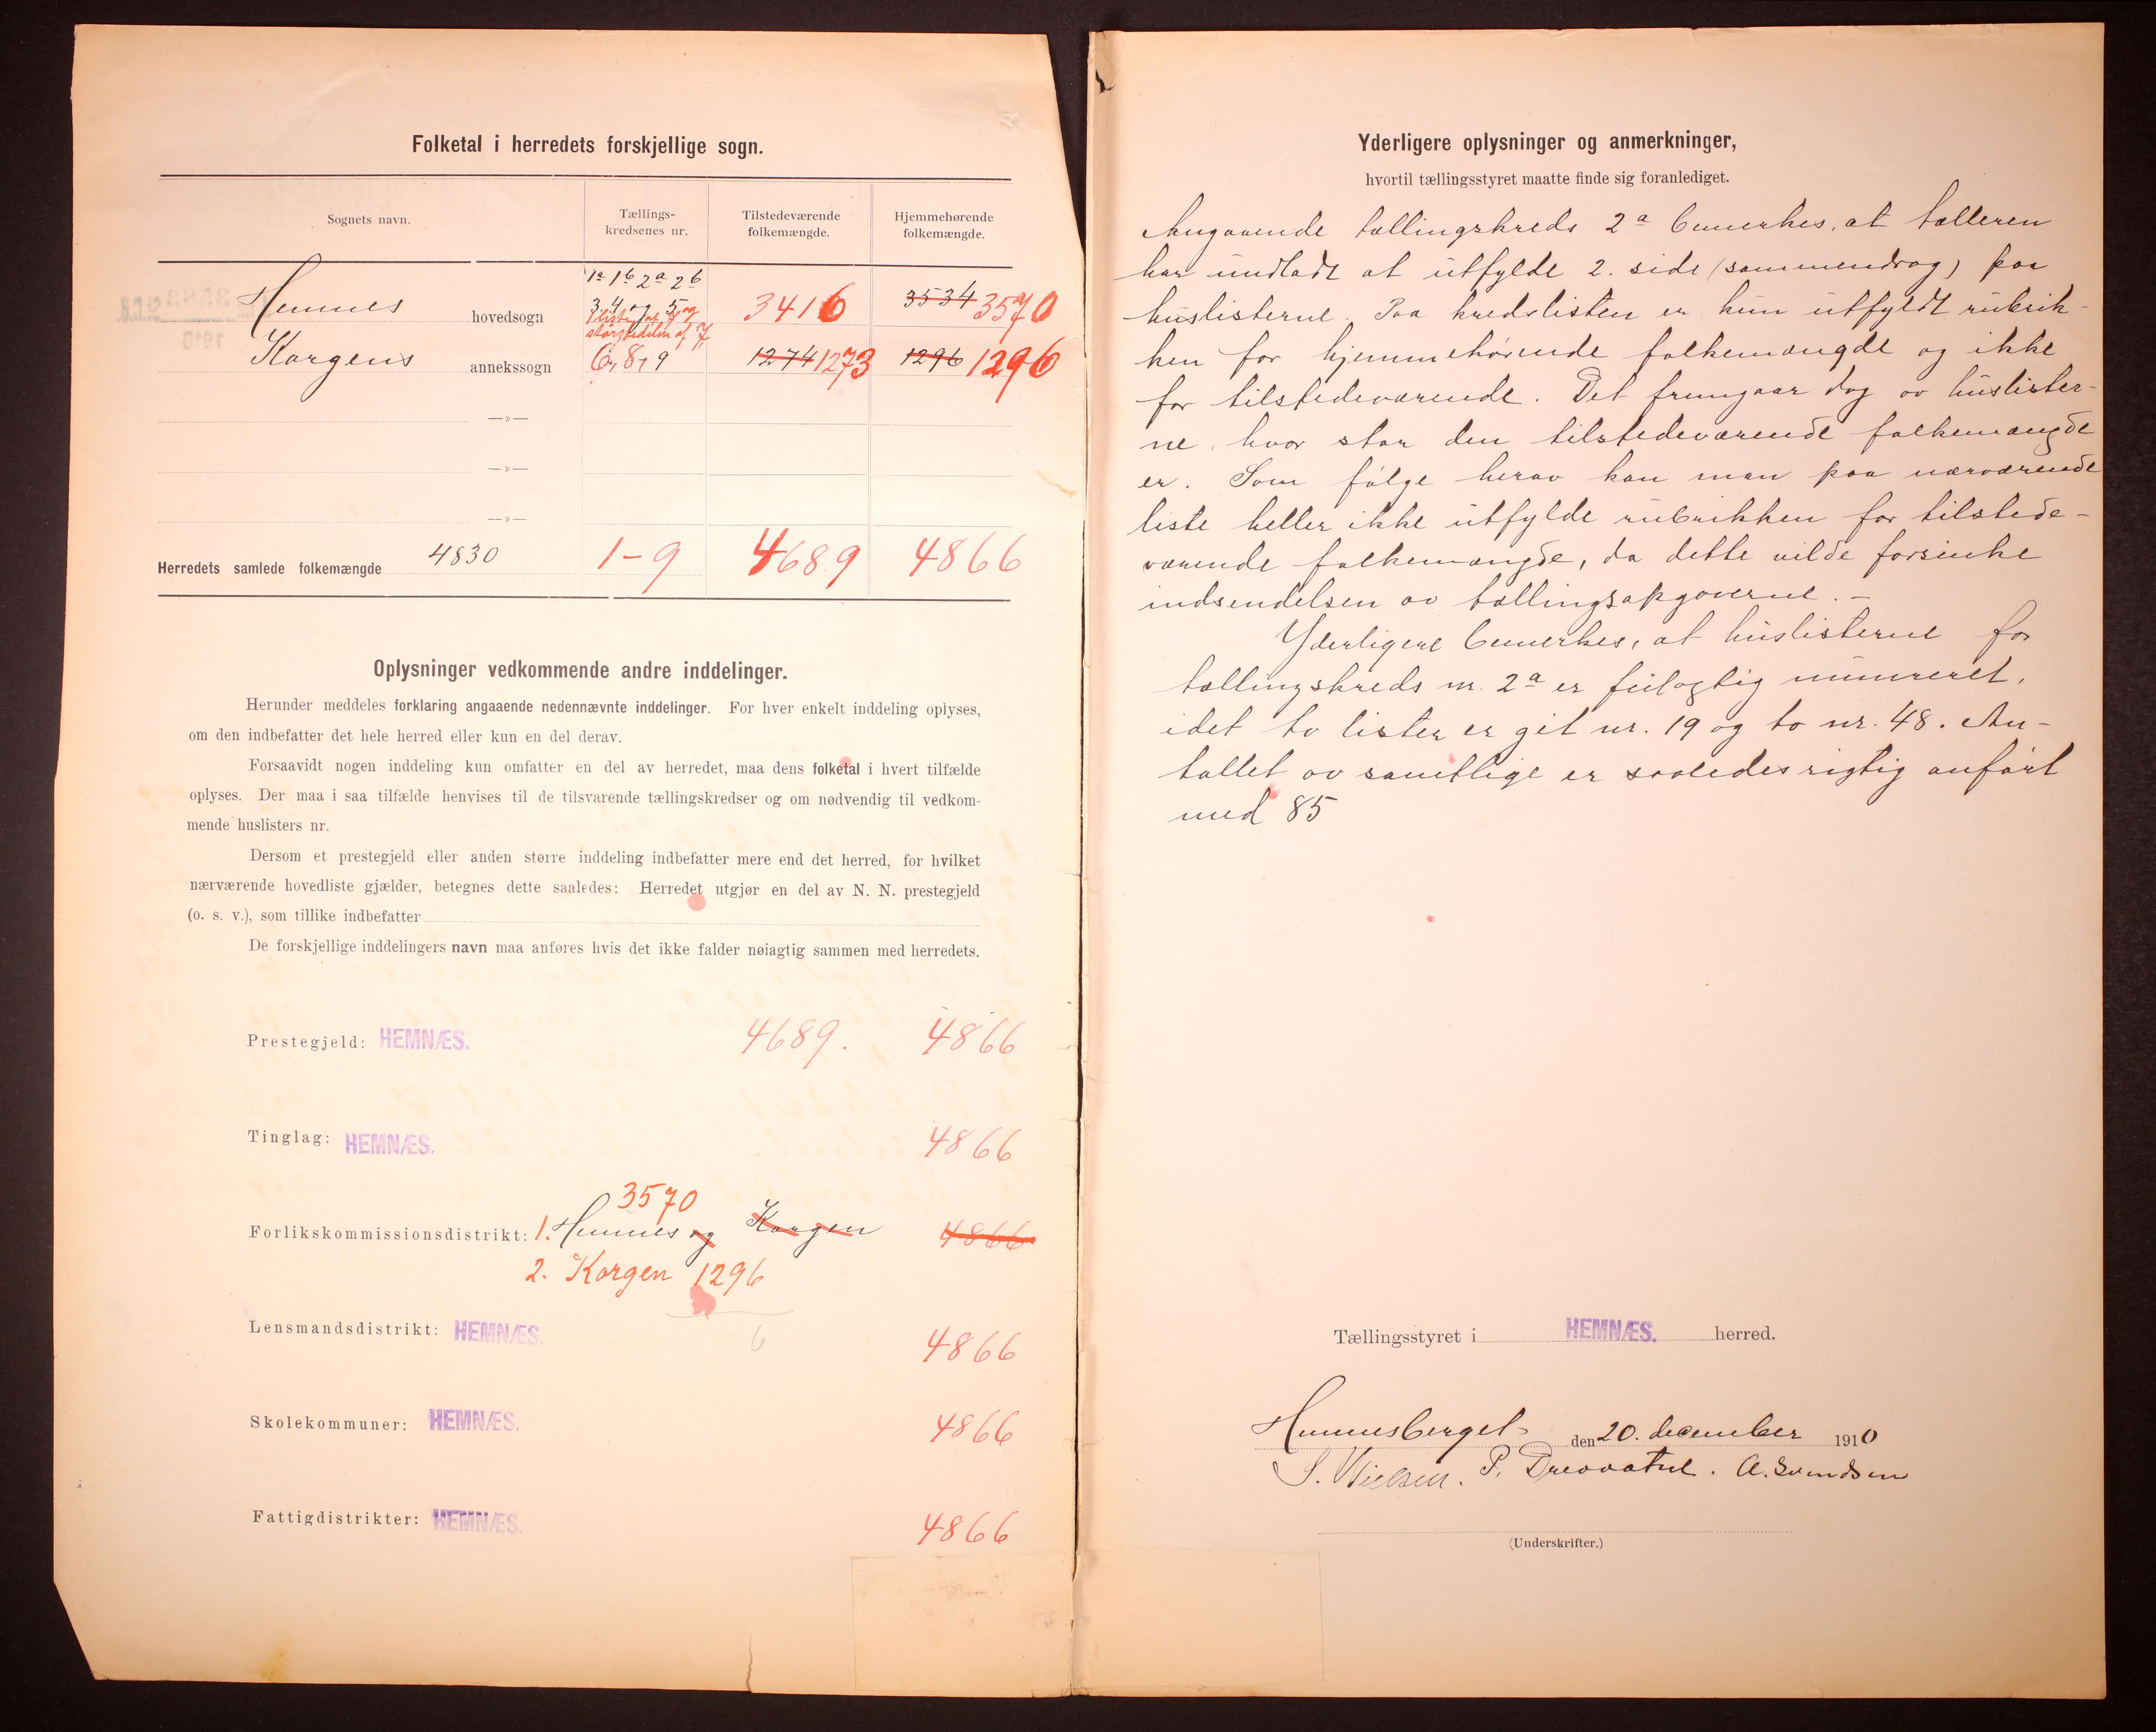 Folketal i herredets forskjellige sogn.
Sognets navn.
Tællings-
kredsenes nr.
Tilstedeværende
folkemængde.
Hjemmehørende
folkemængde.
1a 1b 2a 2b
Hemnes hovedsogn 3, 4 og 5 og 3416 3534 3570
størstedelen af 7
Korgens annekssogn 6, 8, 9 1274 1273 1296 1296
—»—
—»—
—»—
Herredets samlede folkemængde 4830 1-9 4689 4866
Oplysninger vedkommende andre inddelinger.
Herunder meddeles forklaring angaaende nedennævnte inddelinger. For hver enkelt inddeling oplyses,
om den indbefatter det hele herred eller kun en del derav.
Forsaavidt nogen inddeling kun omfatter en del av herredet, maa dens folketal i hvert tilfælde
oplyses. Der maa i saa tilfælde henvises til de tilsvarende tællingskredser og om nødvendig til vedkom-
mende huslisters nr.
Dersom et prestegjeld eller anden større inddeling indbefatter mere end det herred, for hvilket
nærværende hovedliste gjælder, betegnes dette saaledes: Herredet utgjør en del av N. N. prestegjeld
(o. s. v.), som tillike indbefatter
De forskjellige inddelingers navn maa anføres hvis det ikke falder nøiagtig sammen med herredets.
Prestegjeld: HEMNÆS. 4689. 4866
Tinglag: HEMNÆS. 4866
3570
Forlikskommissionsdistrikt: 1. Hemnes og Korgen 4866
2. Korgen 1296
Lensmandsdistrikt: HEMNÆS. 6 4866
Skolekommuner: HEMNÆS. 4866
Fattigdistrikter: HEMNÆS. 4866
Yderligere oplysninger og anmerkninger,
hvortil tællingsstyret maatte finde sig foranlediget.
Angaaende tællingskreds 2a bemerkes, at tælleren
har undladt at utfylde 2. side (sammendrag) paa
huslisterne. Paa kredslisten er kun utfyldt rubrik-
ken for hjemmehørende folkemængde og ikke
for tilstedeværende. Det fremgaar dog av huslister-
ne, hvor stor den tilstedeværende folkemængde
er. Som følge herav kan man paa nærværende
liste heller ikke utfylde rubrikken for tilstede-
værende folkemængde, da dette vilde forsinke
indsendelsen av tællingsopgaverne. —
Yderligere bemerkes, at huslisterne for
tællingskreds nr. 2a er feilagtig numereret,
idet to lister er git nr. 19 og to nr. 48. An-
tallet av samtlige er saaledes rigtig anført
med 85
Tællingsstyret i HEMNÆS. herred.
Hemnesberget den 20. december 1910
S. Nielsen. P. Drevvatne. A. Svendsen
(Underskrifter.)